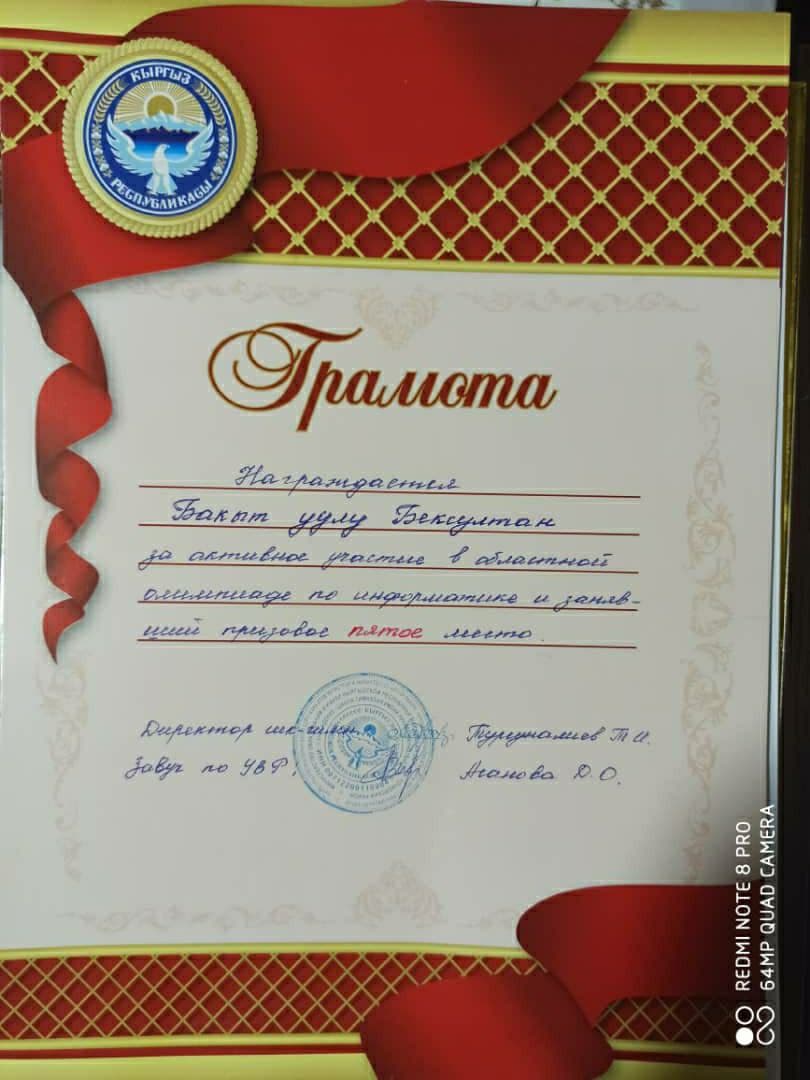 КЫРГЫЗ
РЕСПУБЛИКАСЫ
Грамота
Награждается
Бакыт уулу Бексултан
за активное участие в областной
олимпиаде по информатике и заняв-
ший призовое пятое место.
Директор шк-гимн.
Завуч по УВР, Аганова Д.О.
REDMI NOTE 8 PRO
64MP QUAD CAMERA